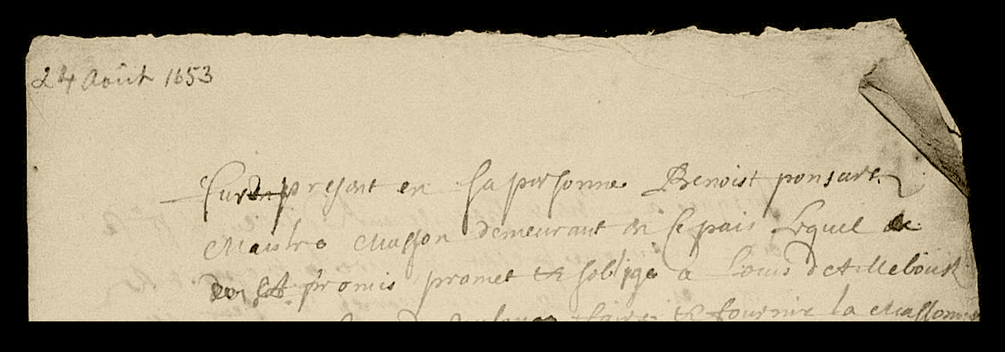 24 Août 1653
Fut present en sa personne Benoist ponsart
Maistre Masson demeurant en se pais Lequel
A promis promet et soblige a Louis dAilleboust
faire et fournir la Massonne